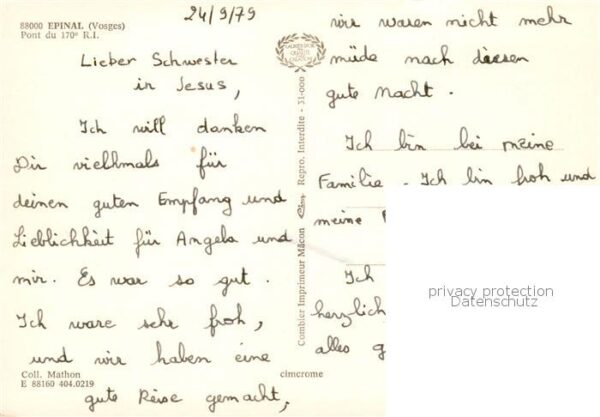 88000 EPINAL (Vosges)
Pont du 170e R.I.
24/9/79
Lieber Schwester
in Jesus,
Ich will danken
Dir vielhmals für
deinen guten Empfang und
Lieblichkeit für Angela und
mir. Es war so gut.
Ich ware sehr froh,
und wir haben eine
gute Reise gemacht,
Coll. Mathon
E 88160 404.0219
cimcrome
Combier Imprimeur Mâcon Cim Repro. Interdite - 31-000
wir waren nicht mehr
müde nach diesen
gute Nacht.
Ich bin bei meine
Familie. Ich bin froh und
meine
Ich
herzlich
alles g
privacy protection
Datenschutz